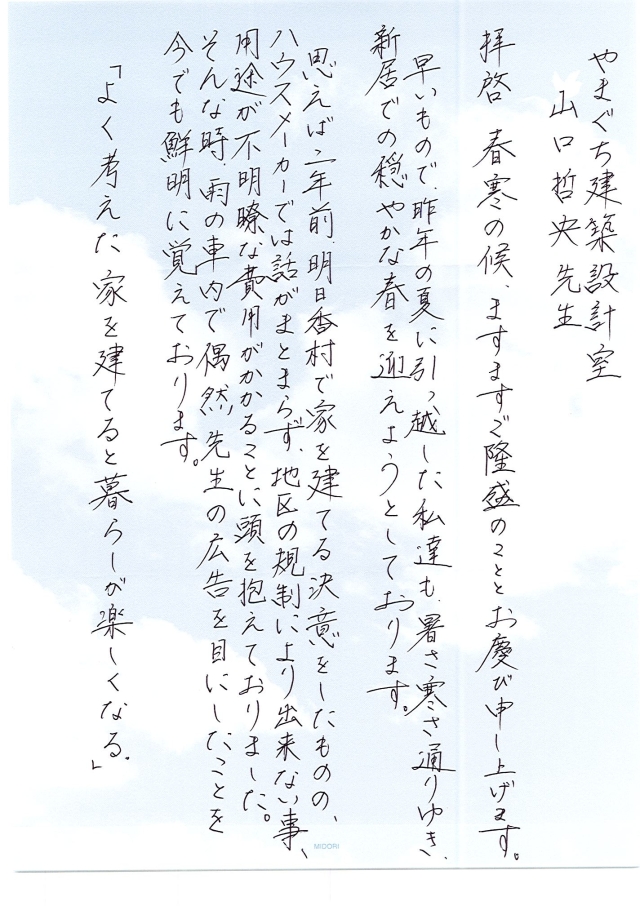 やまぐち建築設計室
山口哲央先生
拝啓 春寒の候、ますますご隆盛のこととお慶び申し上げます。
早いもので、昨年の夏に引っ越した私達も、暑さ寒さ通りゆき、
新居での穏やかな春を迎えようとしております。
思えば二年前、明日香村で家を建てる決意をしたものの、
ハウスメーカーでは話がまとまらず、地区の規制により出来ない事、
用途が不明瞭な費用がかかることに頭を抱えておりました。
そんな時、雨の車内で偶然、先生の広告を目にしたことを
今でも鮮明に覚えております。
「よく考えた家を建てると暮らしが楽しくなる。」
MIDORI